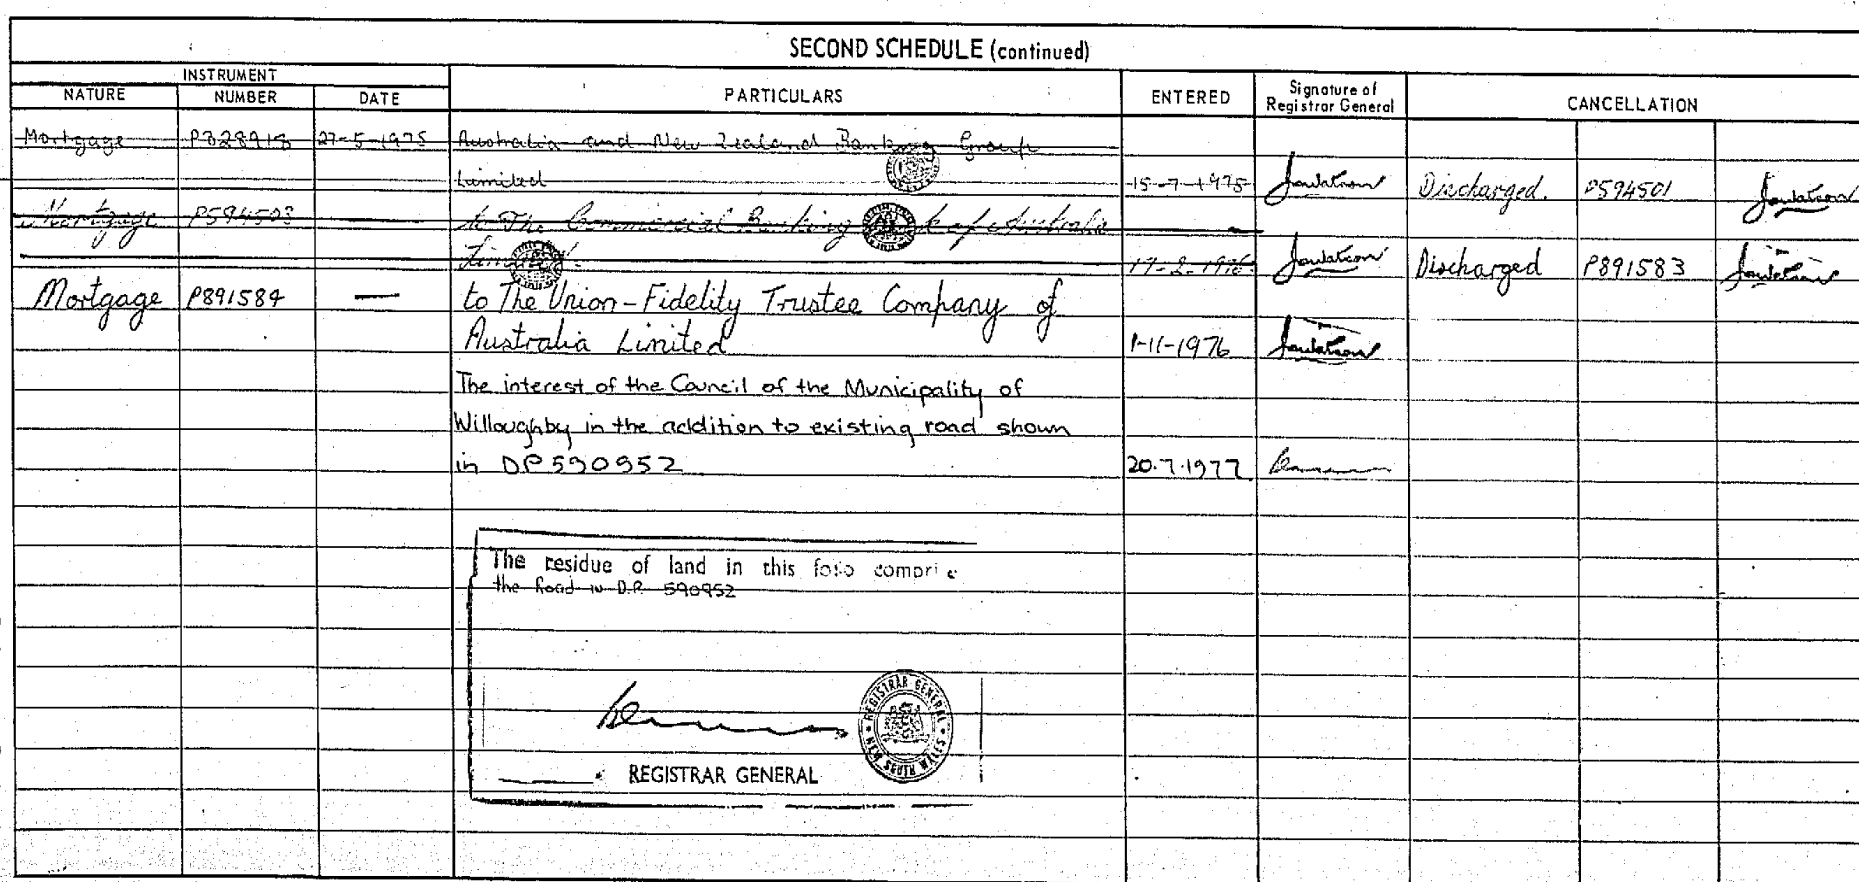 SECOND SCHEDULE (continued)
INSTRUMENT
NATURE NUMBER DATE PARTICULARS ENTERED Signature of Registrar General CANCELLATION
Mortgage P328918 27-5-1975 Australia and New Zealand Banking Group
Limited 15-7-1975 Discharged. P594501
Mortgage P594503 to The Commercial Banking of Australia
Limited 17-2-1976 Discharged P891583
Mortgage P891584 — to The Union-Fidelity Trustee Company of
Australia Limited 1-11-1976
The interest of the Council of the Municipality of
Willoughby in the addition to existing road shown
in DP590952 20.7.1977
The residue of land in this folio comprise
the Road in D.P. 590952
REGISTRAR GENERAL
REGISTRAR GENERAL NEW SOUTH WALES